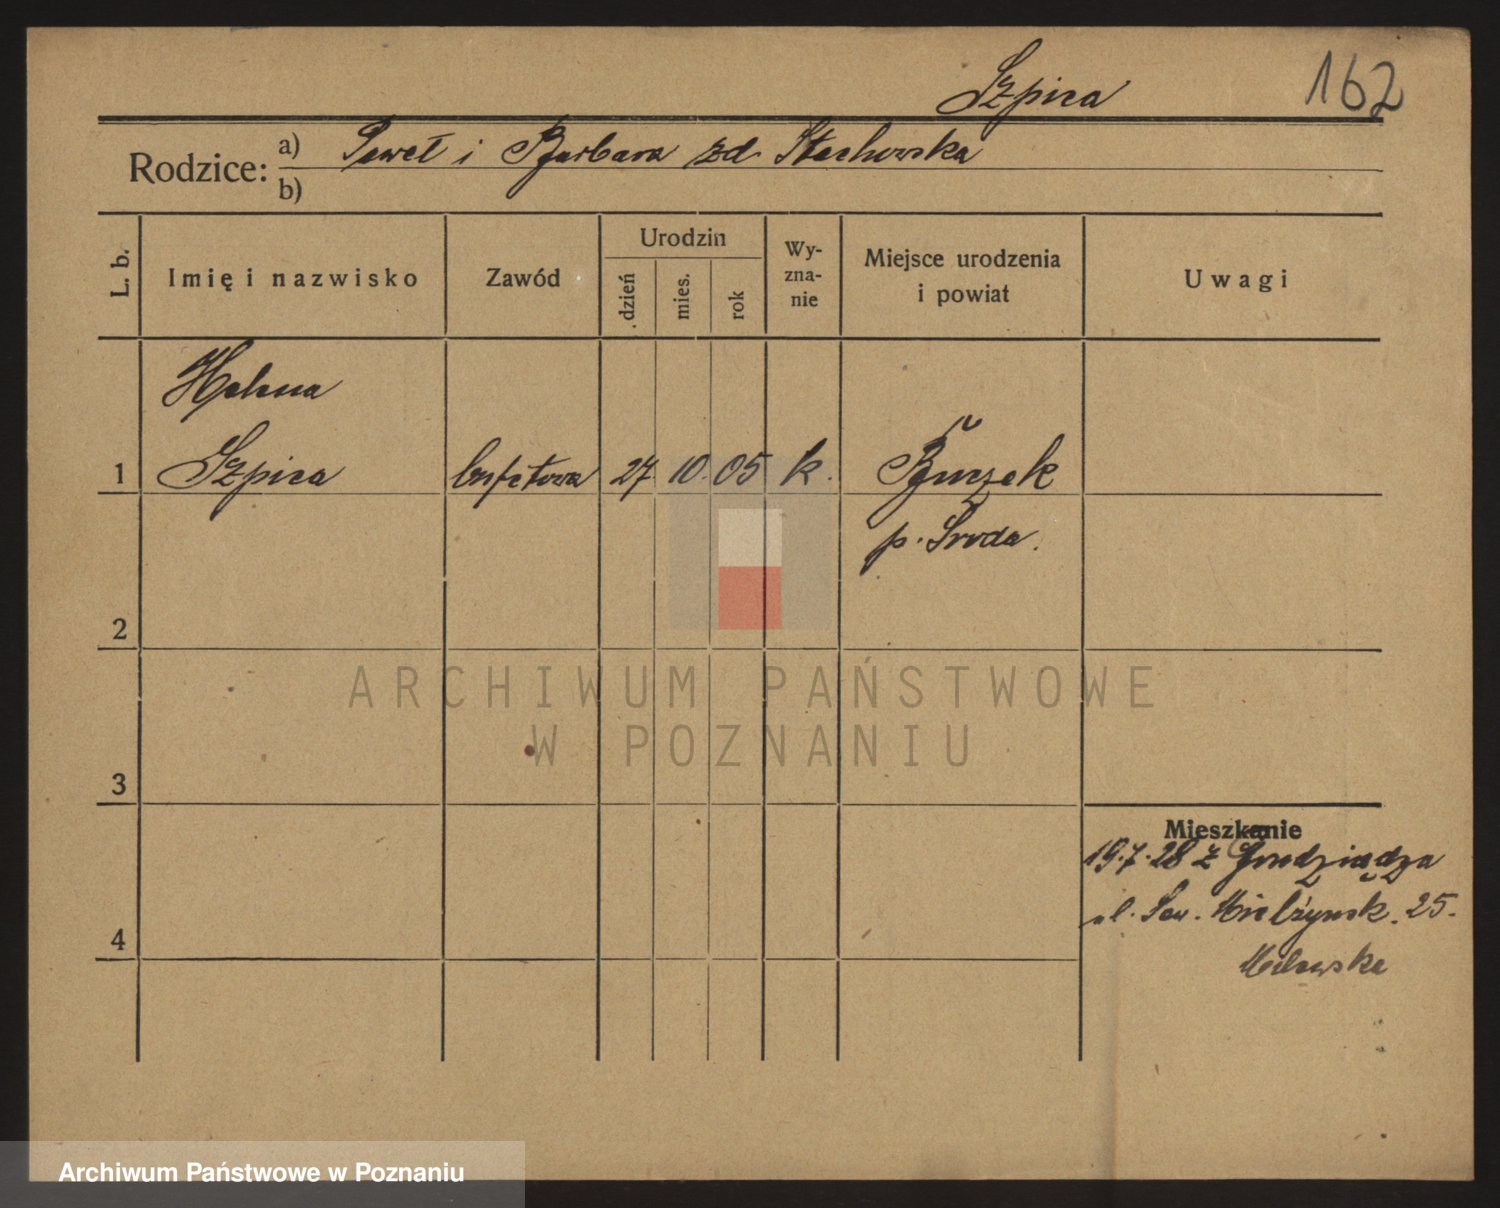 Szpica
162
Rodzice: a) Paweł i Barbara zd. Stachowska
b)
L. b.
Imię i nazwisko
Zawód
Urodzin
dzień
mies.
rok
Wy-
zna-
nie
Miejsce urodzenia
i powiat
Uwagi
Helena
1 Szpica bufetowa 27. 10. 05 k.
p. Środa.
2
3
4
Mieszkanie
19.7.28 z Grudziądza
ul. Sew. Mielżyńsk. 25.
ARCHIWUM PAŃSTWOWE
W POZNANIU
Archiwum Państwowe w Poznaniu